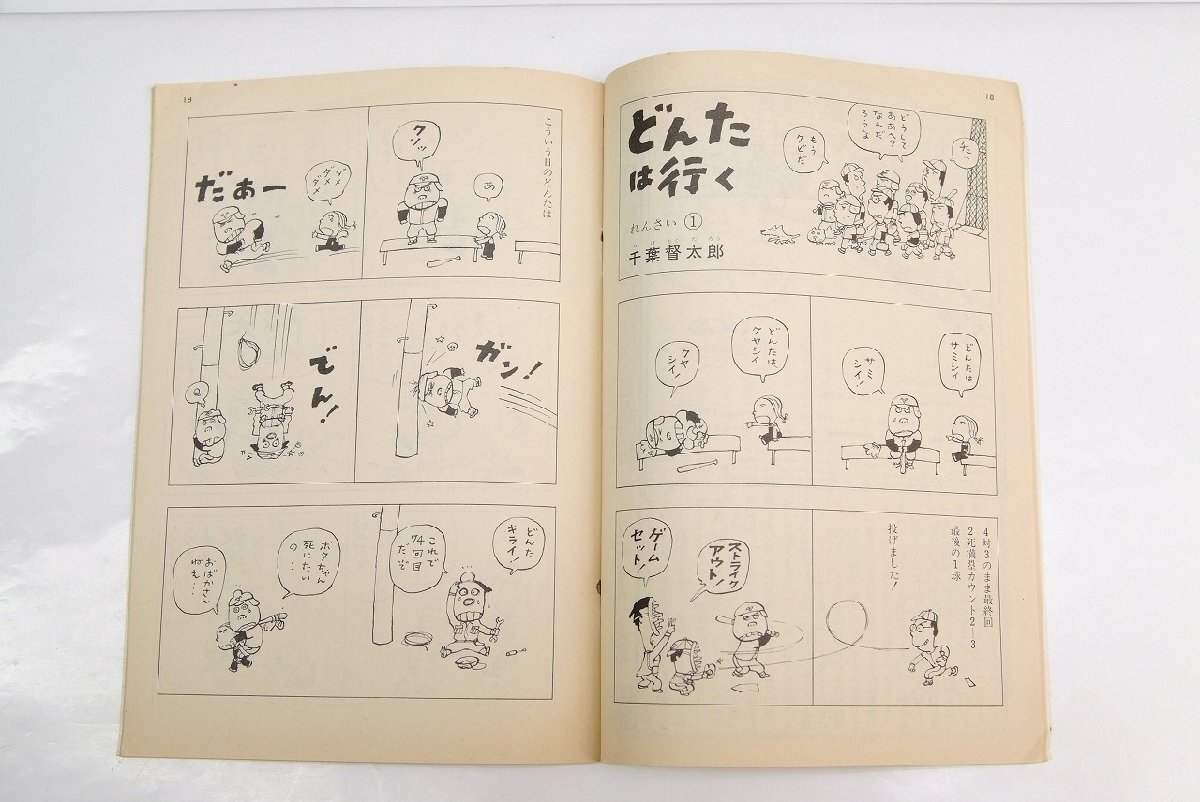 18
どうして
なんだ
ろうな
もう
クビだ
どんた
は行く
れんさい ①
千葉督太郎
どんたは
サミシイ
サミ
シイ!
どんたは、
クヤシイ
クヤ
シイ!
4対3のまま最終回
2死満塁カウント2―3
最後の1球
投げました!
ストライク
アウト!
ゲーム
セット!
19
こういう日のどんたは
クソッ
あ
ダメ
ダメ
ダメ
だぁー
ガン!
でん!
どんた
キライ!
これで
74回目
だぞ
ボクちゃん
死にたい
の…
おばかさん
ねぇ…